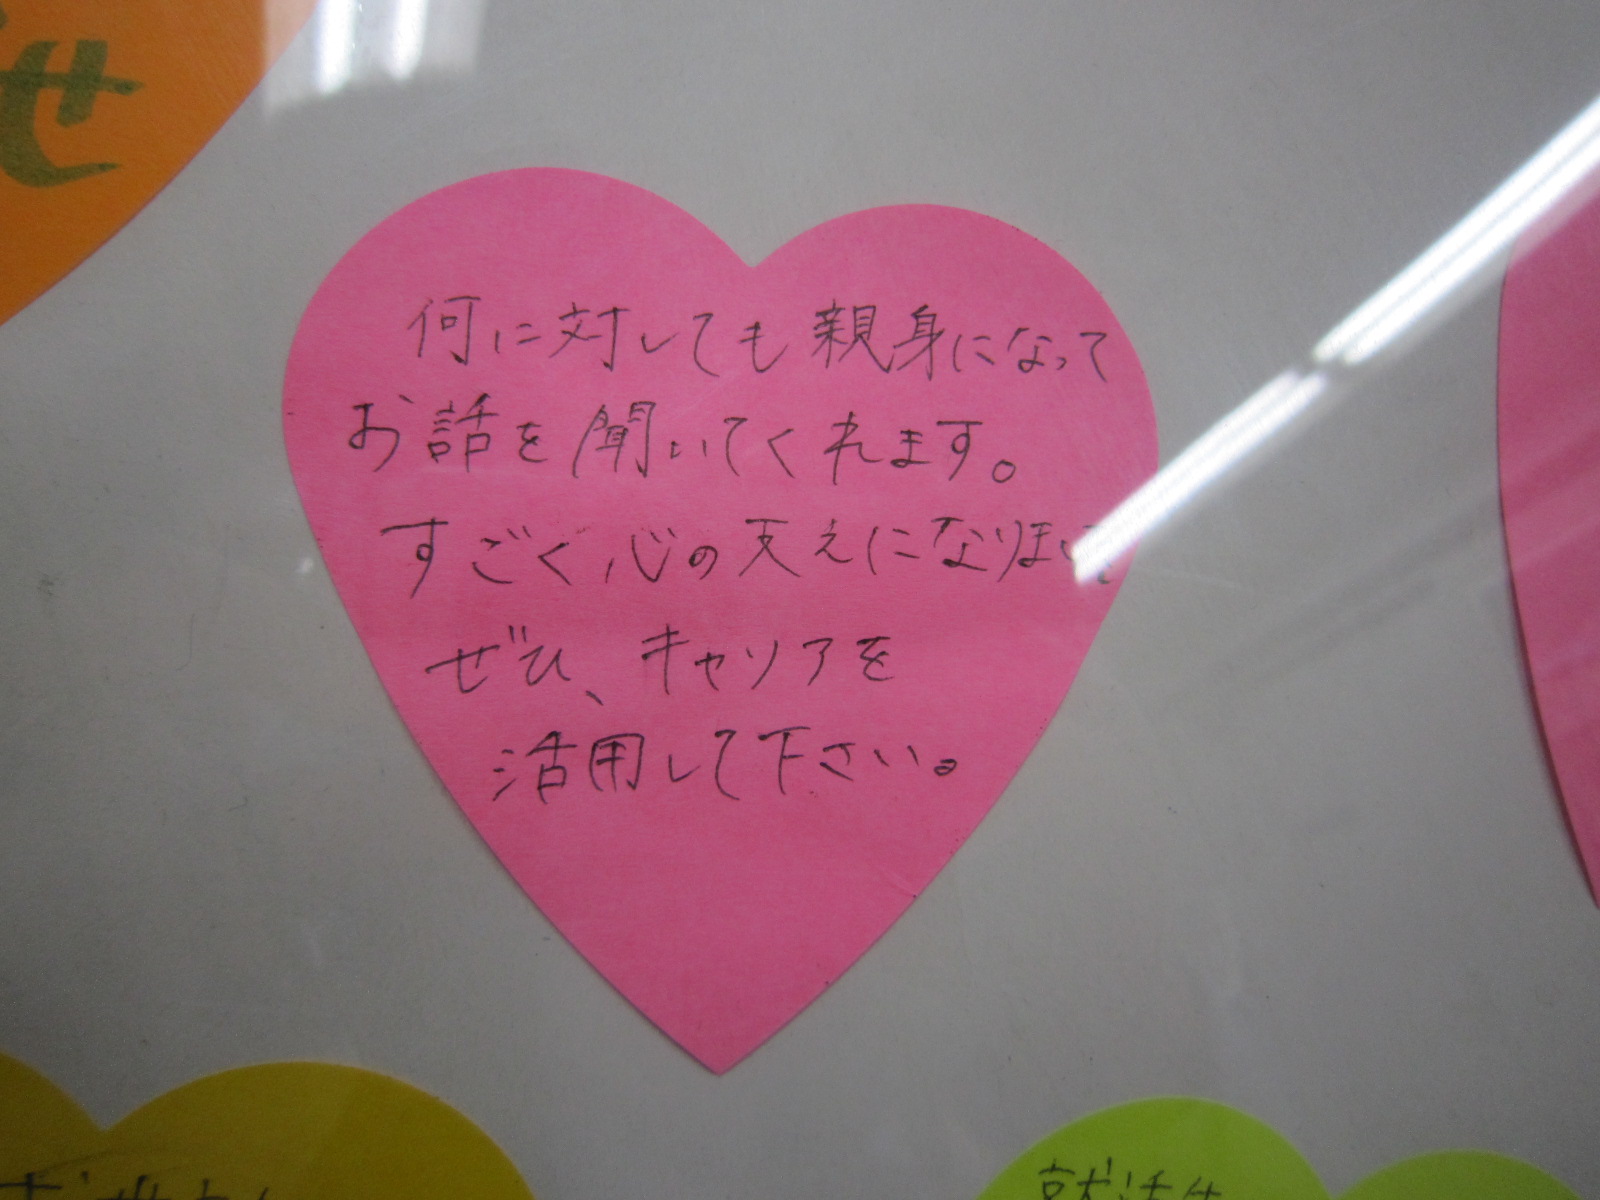 せ
何に対しても親身になって
お話を聞いてくれます。
すごく心の支えになりまし
ぜひ、キャリアを
活用して下さい。
就活生